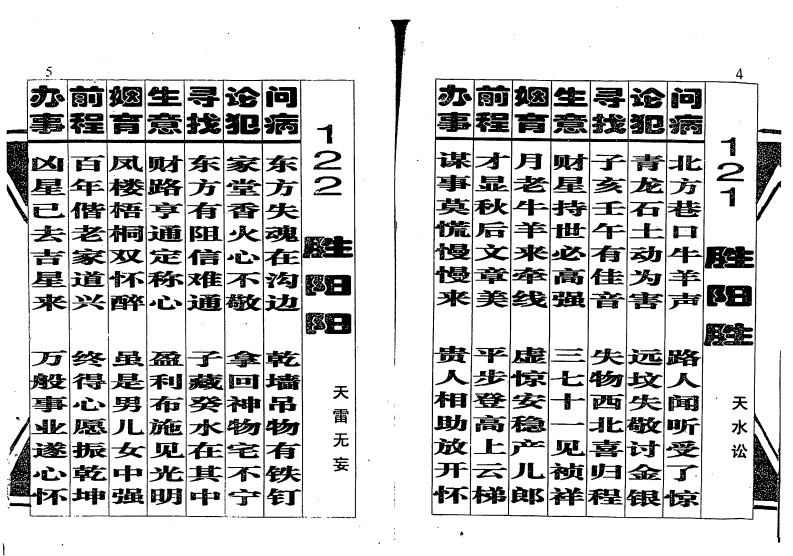 4
121 胜阳胜 天水讼
问病 北方巷口牛羊声 路人闻听受了惊
论犯 青龙石土动为害 远坟失敬讨金银
寻找 子亥壬午有佳音 失物西北喜归程
生意 财星持世必高强 三七十一见祯祥
姻育 月老牛羊来牵线 虚惊安稳产儿郎
前程 才显秋后文章美 平步登高上云梯
办事 谋事莫慌慢慢来 贵人相助放开怀
5
122 胜阳阳 天雷无妄
问病 东方失魂在沟边 乾墙吊物有铁钉
论犯 家堂香火心不敬 拿回神物宅不宁
寻找 东方有阻信难通 子藏癸水在其中
生意 财路亨通定称心 盈利布施见光明
姻育 凤楼梧桐双怀醉 虽是男儿女中强
前程 百年偕老家道兴 终得心愿振乾坤
办事 凶星已去吉星来 万般事业遂心怀